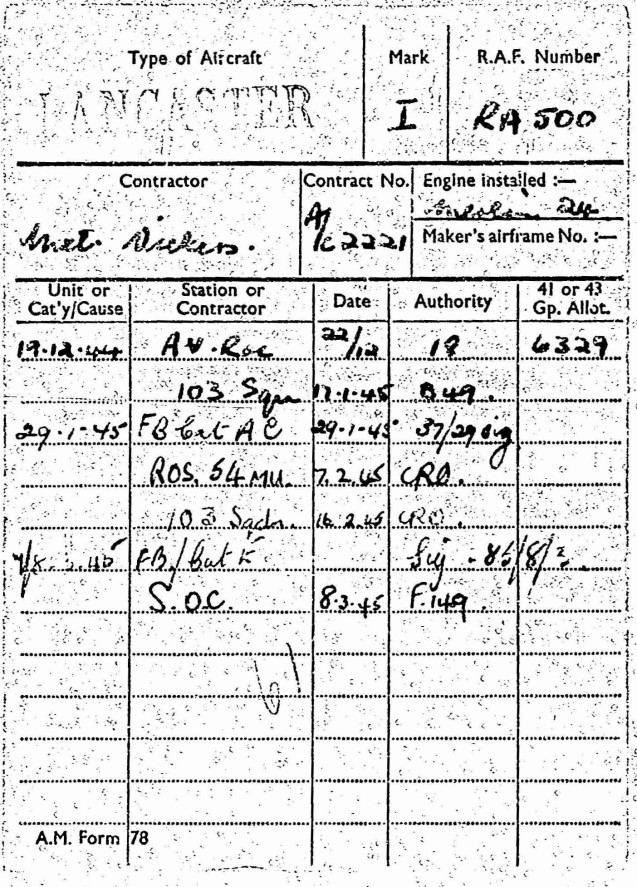 Type of Aircraft Mark R.A.F. Number
LANCASTER I RA 500
Contractor Contract No. Engine installed :—
Merlin 24
Met. Vickers. A/C 2221 Maker's airframe No. :—
Unit or Cat'y/Cause Station or Contractor Date Authority 41 or 43 Gp. Allot.
19.12.44 A.V. Roe 22/12 18 6329
103 Sqn 17.1.45 B49.
29.1.45 FB Cat AC 29.1.45 37/29 sig
ROS. 54 MU. 7.2.45 CRO.
103 Sqdn. 16.2.45 CRO.
7/8.3.45 FB/Cat E Sig
S.O.C. 8.3.45 F.149.
61
A.M. Form 78